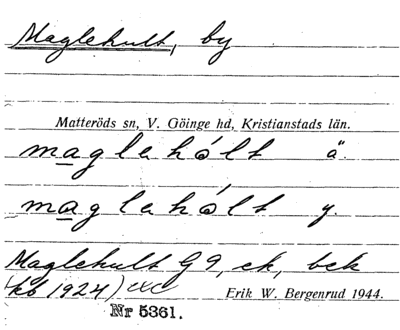 Maglehult, by
Matteröds sn, V. Göinge hd, Kristianstads län.
maglahólt ä.
maglahólt y.
Maglehult G 9, ek, bek
(kb 1924)
Erik W. Bergenrud 1944.
Nr 5361.